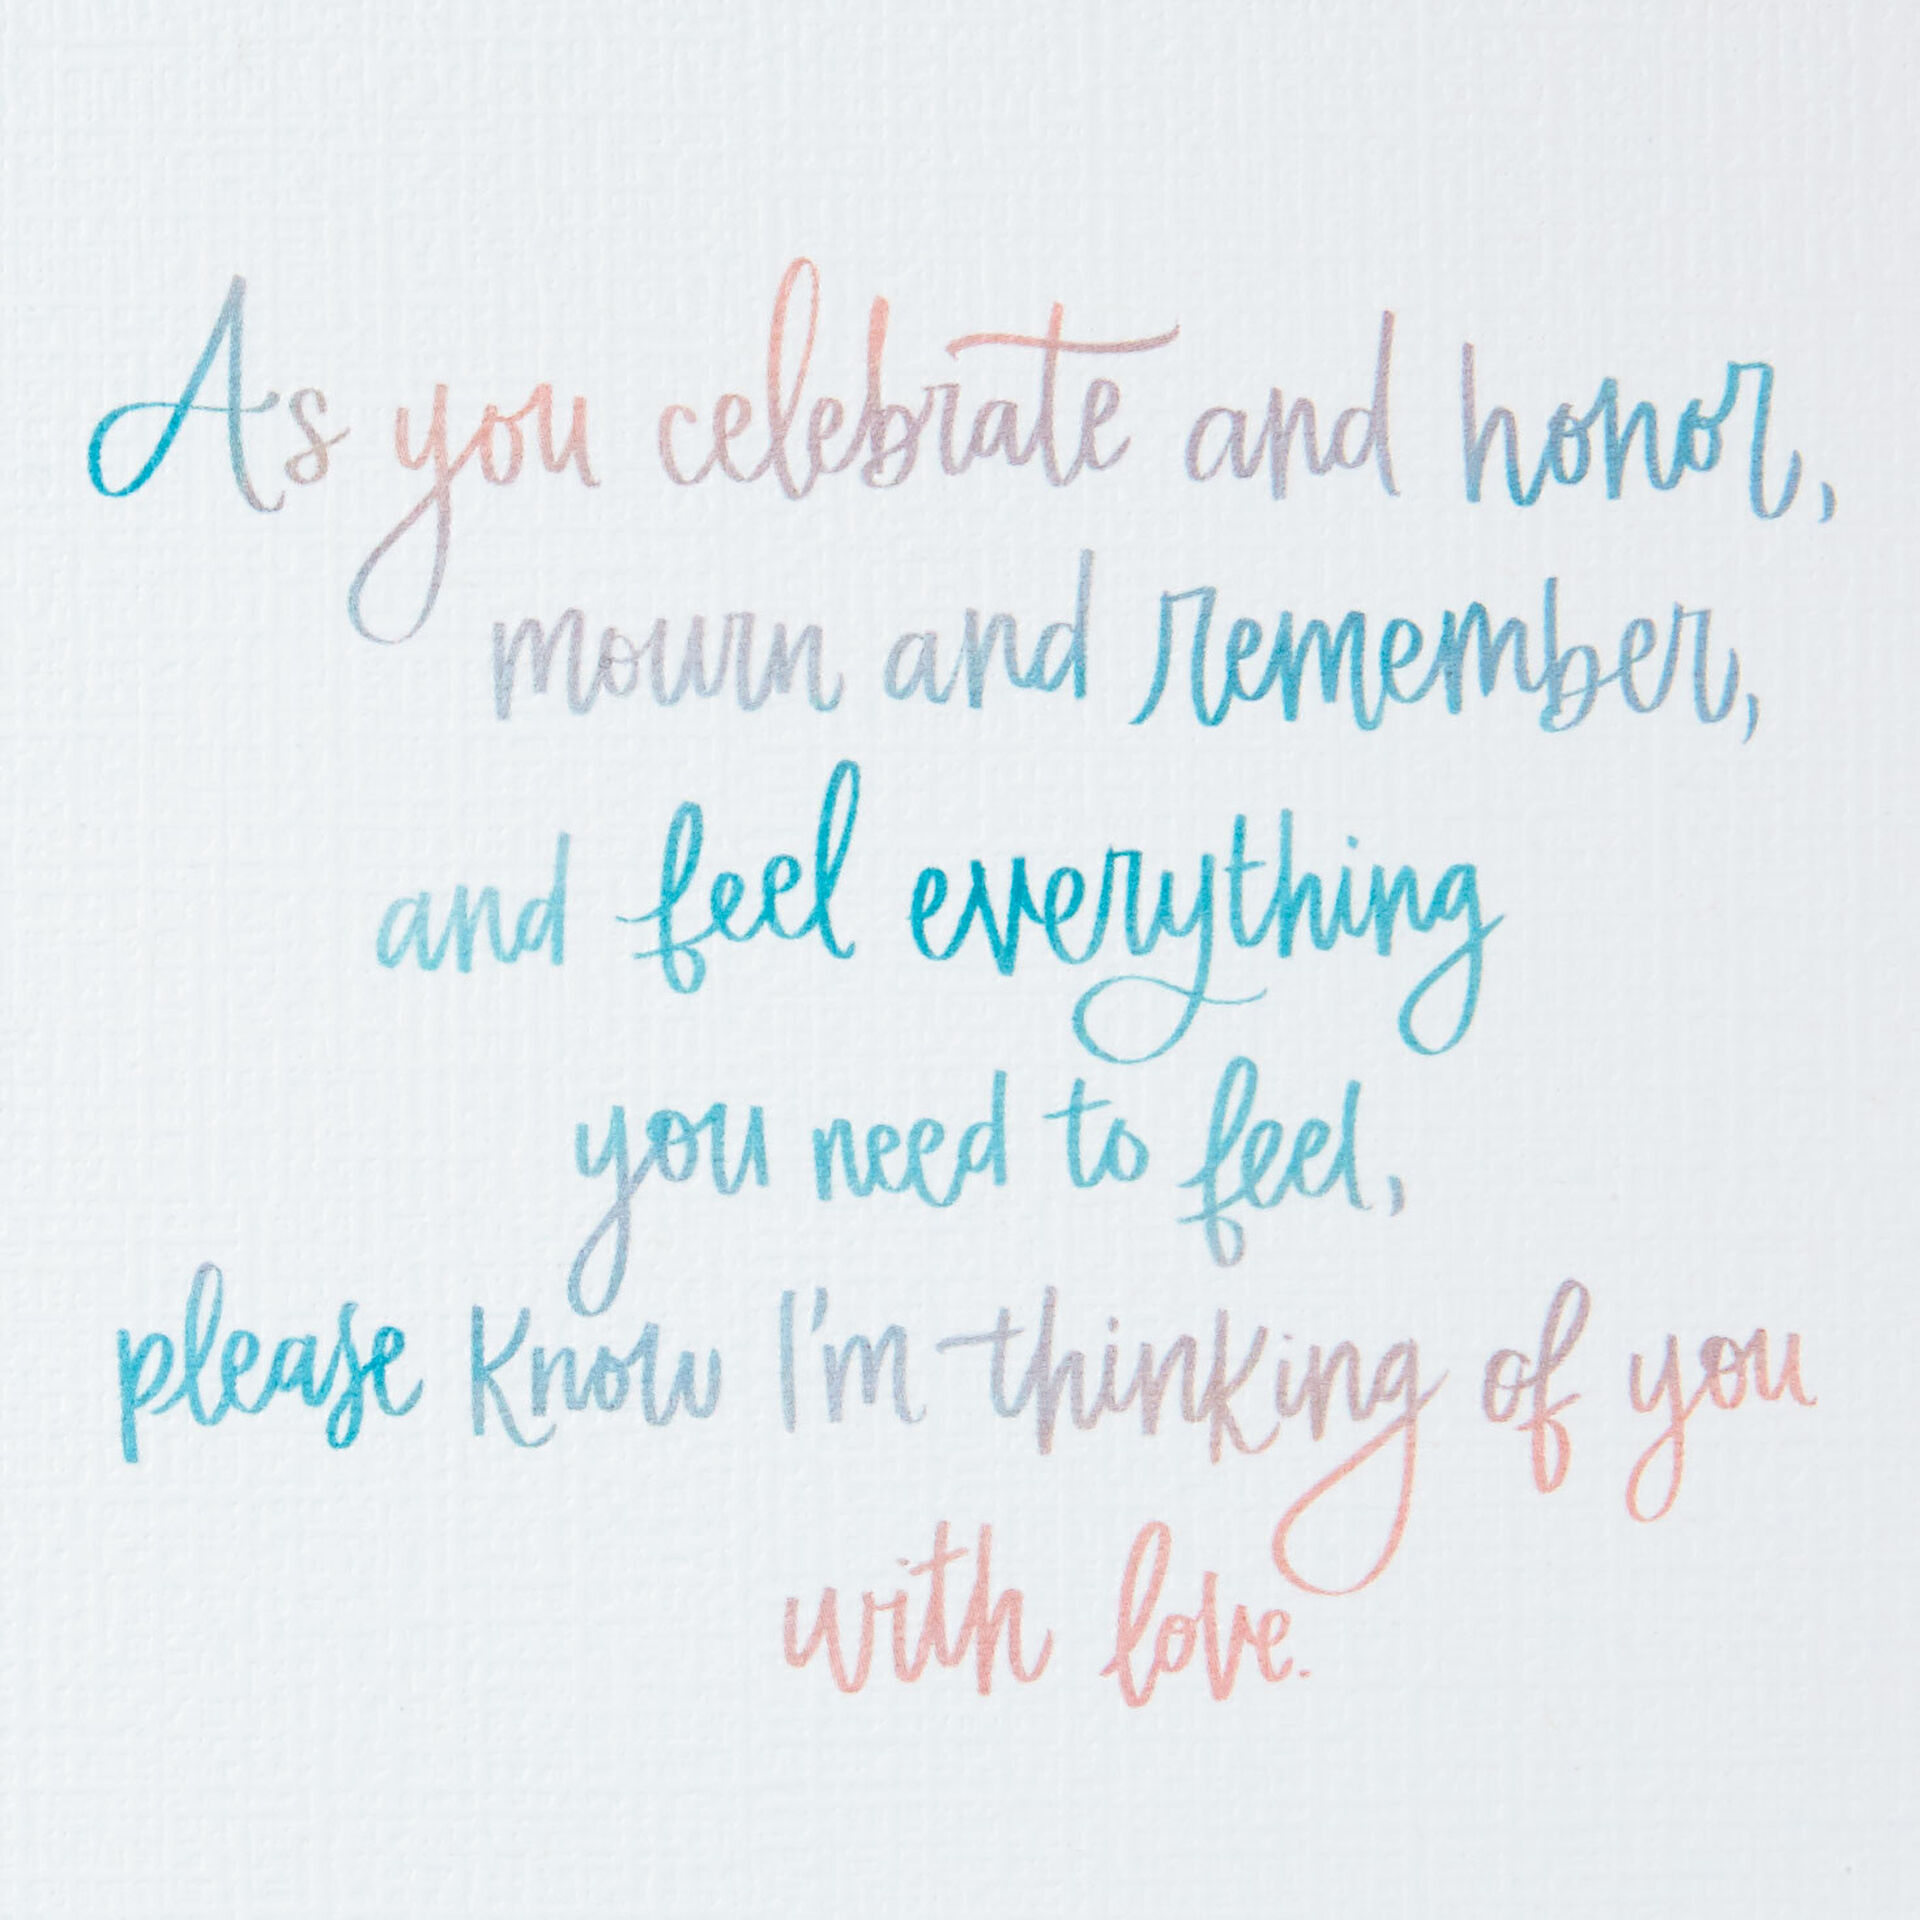 As you celebrate and honor,
mourn and remember,
and feel everything
you need to feel,
please know I'm thinking of you
with love.